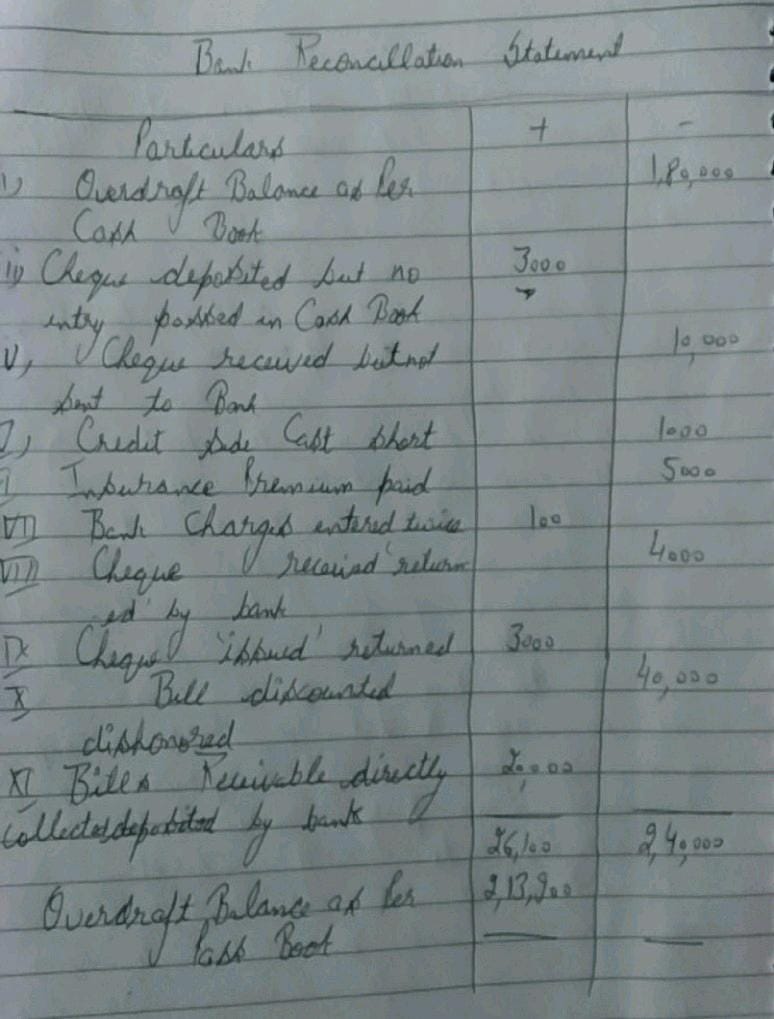 Bank Reconcillation Statement
Particulars + -
i) Overdraft Balance as Per 1,80,000
Cash Book
ii) Cheque deposited but no 3000
entry passed in Cash Book
V, Cheque received but not 10,000
sent to Bank
Credit side Cast short 1000
Insurance Premium paid 5000
VII Bank Charges entered twice 100
VIII Cheque 'received' return 4000
ed by bank
IX Cheque 'issued' returned 3000
X Bill discounted 40,000
dishonored
XI Bills Receivable directly 20,000
collected deposited by bank
26,100 2,40,000
Overdraft Balance as Per 2,13,900
Pass Book